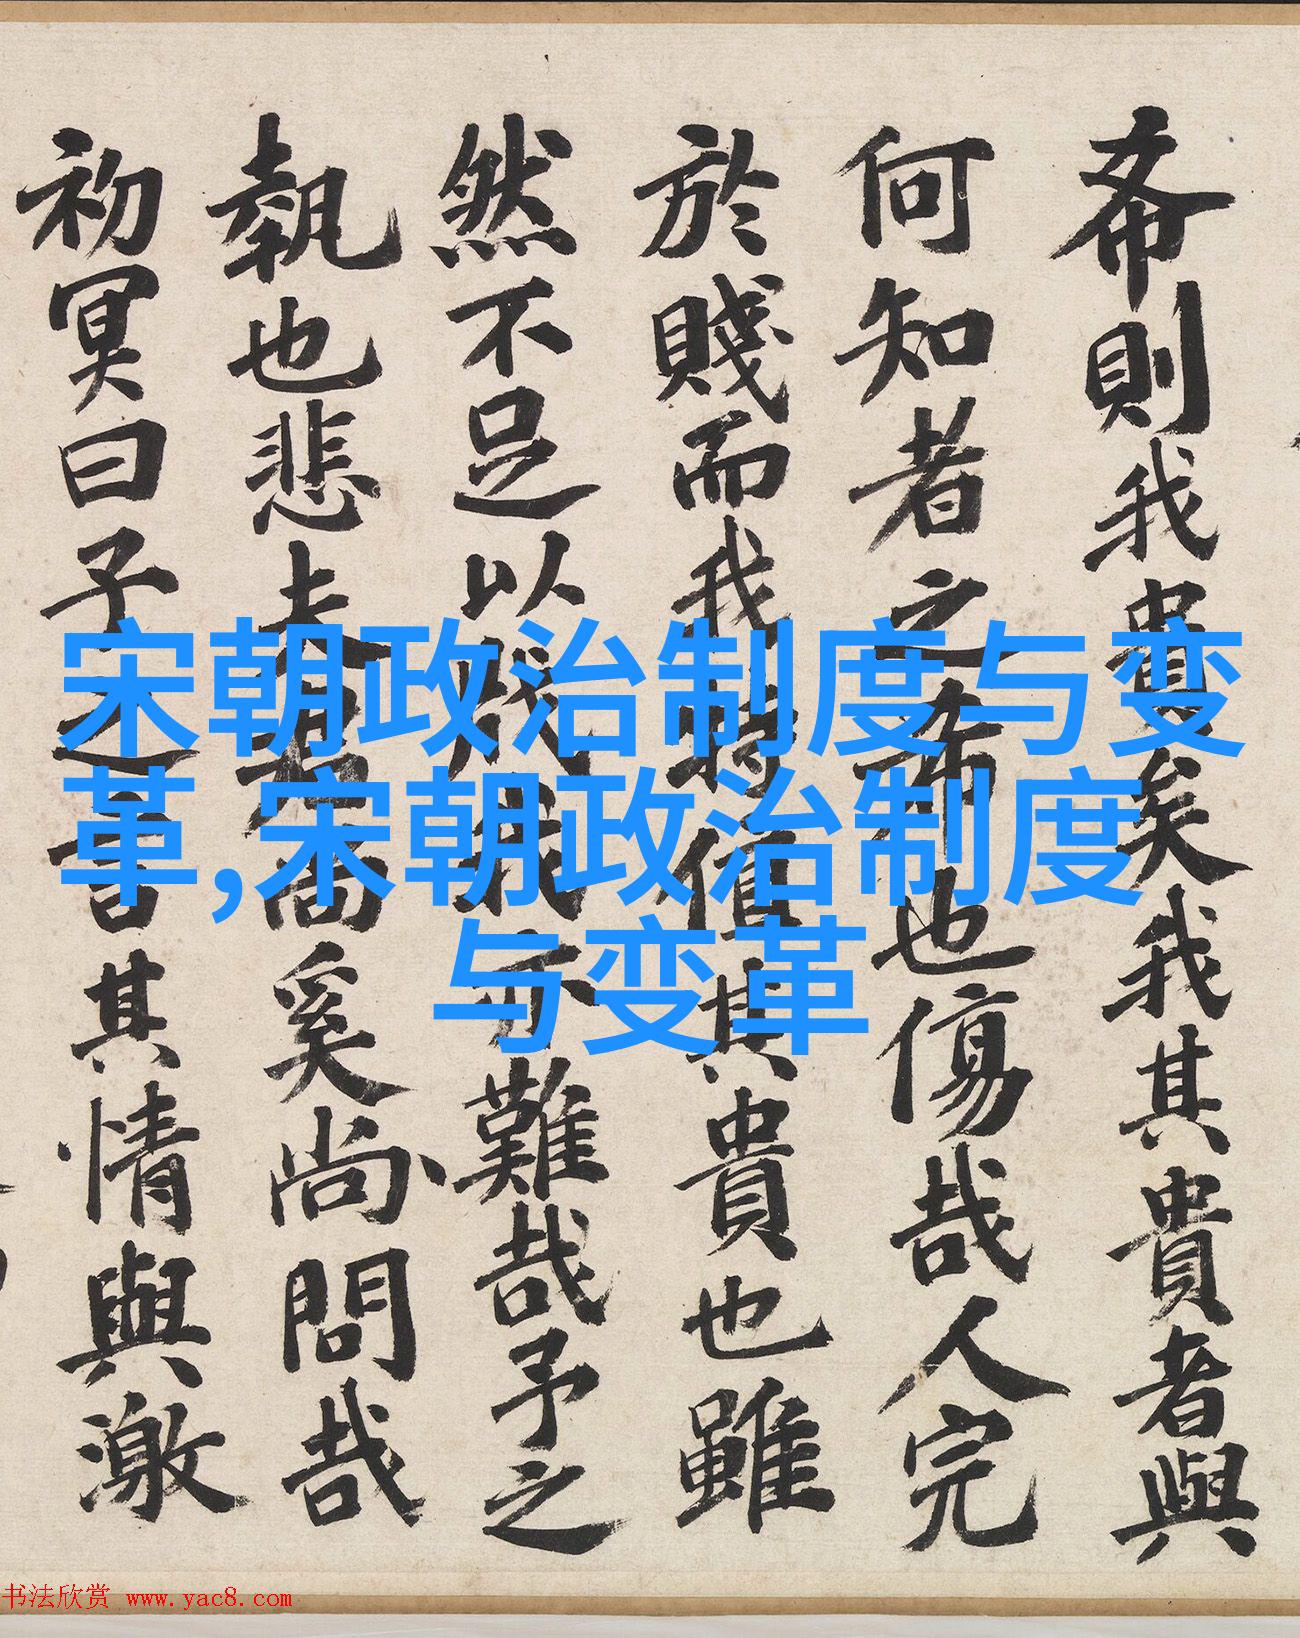 希則我貴矣我其貴者與
何知者之希也傷哉人完
於賤而我特值其貴也雖
然不足以賤我亦難哉予之
執也悲夫奚尚問哉
初冥曰子之言其情與激
宋朝政治制度与变
革,宋朝政治制度
与变革
书法欣赏 www.yac8.com